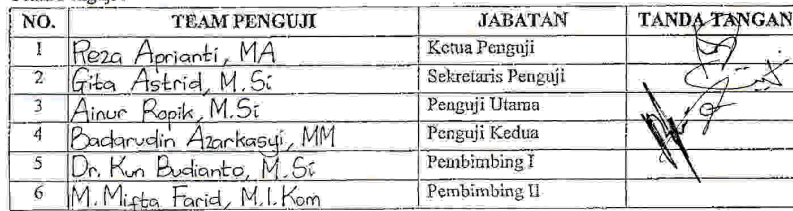 NO. TEAM PENGUJI JABATAN TANDA TANGAN
1 Reza Aprianti, MA Ketua Penguji
2 Gita Astrid, M.Si Sekretaris Penguji
3 Ainur Ropik, M.Si Penguji Utama
4 Badarudin Azarkasyi, MM Penguji Kedua
5 Dr. Kun Budianto, M.Si Pembimbing I
6 M. Mifta Farid, M.I.Kom Pembimbing II